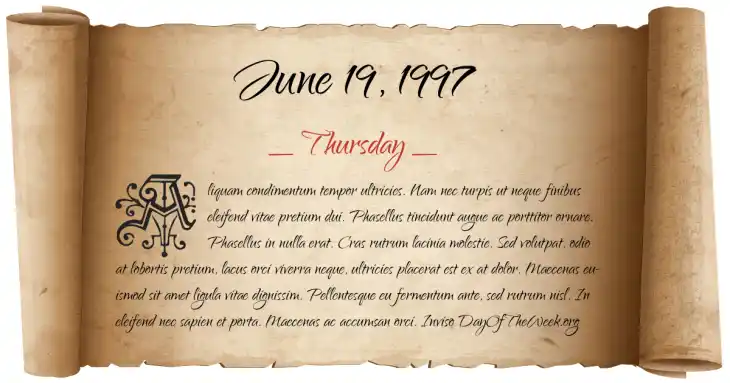 June 19, 1997
__ Thursday __
Aliquam condimentum tempor ultricies. Nam nec turpis ut neque finibus
eleifend vitae pretium dui. Phasellus tincidunt augue ac porttitor ornare.
Phasellus in nulla erat. Cras rutrum lacinia molestie. Sed volutpat, odio
at lobortis pretium, lacus orci viverra neque, ultricies placerat est ex at dolor. Maecenas eu-
ismod sit amet ligula vitae dignissim. Pellentesque eu fermentum ante, sed rutrum nisl. In
eleifend nec sapien et porta. Maecenas ac accumsan orci. Inviso DayOfTheWeek.org